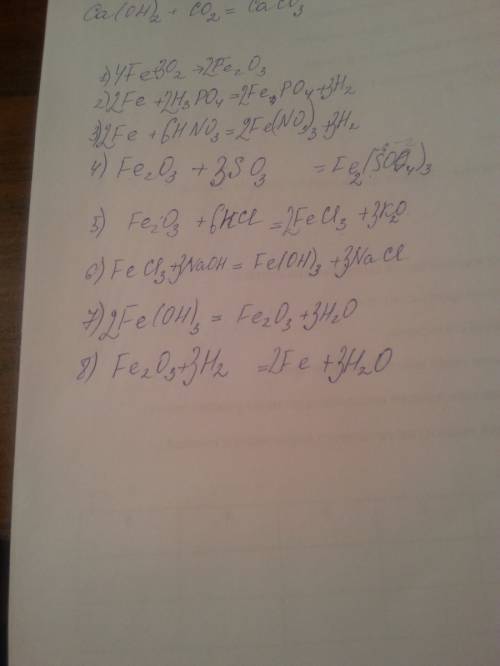 Ca(OH)₂ + CO₂ = CaCO₃
1) 4Fe+3O₂ → 2Fe₂O₃
2) 2Fe + 2H₃PO₄ = 2Fe₃PO₄ + 3H₂
3) 2Fe + 6HNO₃ = 2Fe(NO₃)₃ + 3H₂
4) Fe₂O₃ + 3SO₃ = Fe₂(SO₄)₃
5) Fe₂O₃ + 6KCl = 2FeCl₃ + 3K₂O
6) FeCl₃ + 3NaOH = Fe(OH)₃ + 3NaCl
7) 2Fe(OH)₃ = Fe₂O₃ + 3H₂O
8) Fe₂O₃ + 3H₂ = 2Fe + 3H₂O